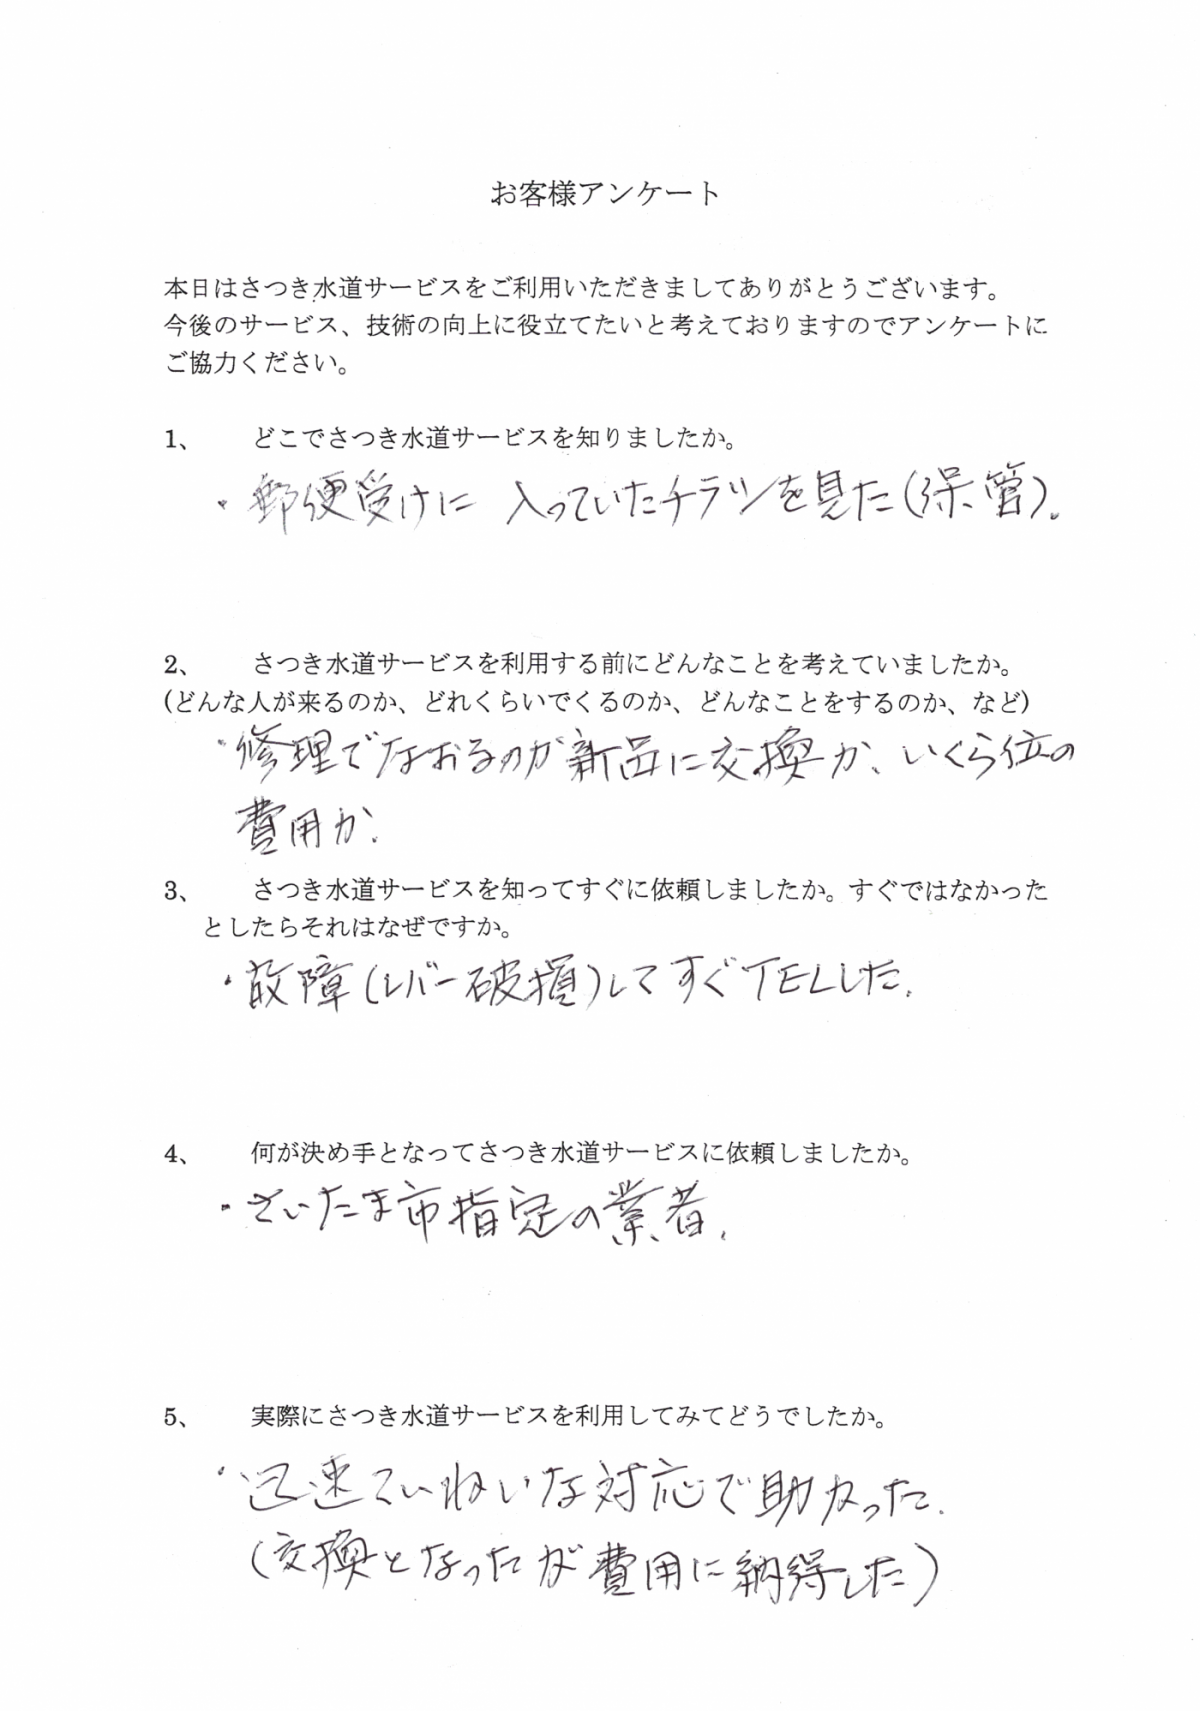 お客様アンケート
本日はさつき水道サービスをご利用いただきましてありがとうございます。
今後のサービス、技術の向上に役立てたいと考えておりますのでアンケートに
ご協力ください。
1、 どこでさつき水道サービスを知りましたか。
・郵便受けに 入っていたチラシを見た(保管)。
2、 さつき水道サービスを利用する前にどんなことを考えていましたか。
(どんな人が来るのか、どれくらいでくるのか、どんなことをするのか、など)
・修理でなおるのか新品に交換か、いくら位の
費用か.
3、 さつき水道サービスを知ってすぐに依頼しましたか。すぐではなかった
としたらそれはなぜですか。
・故障(レバー破損)してすぐTELした.
4、 何が決め手となってさつき水道サービスに依頼しましたか。
・さいたま市指定の業者.
5、 実際にさつき水道サービスを利用してみてどうでしたか。
・迅速ていねいな対応で助かった.
(交換となったが費用に納得した)